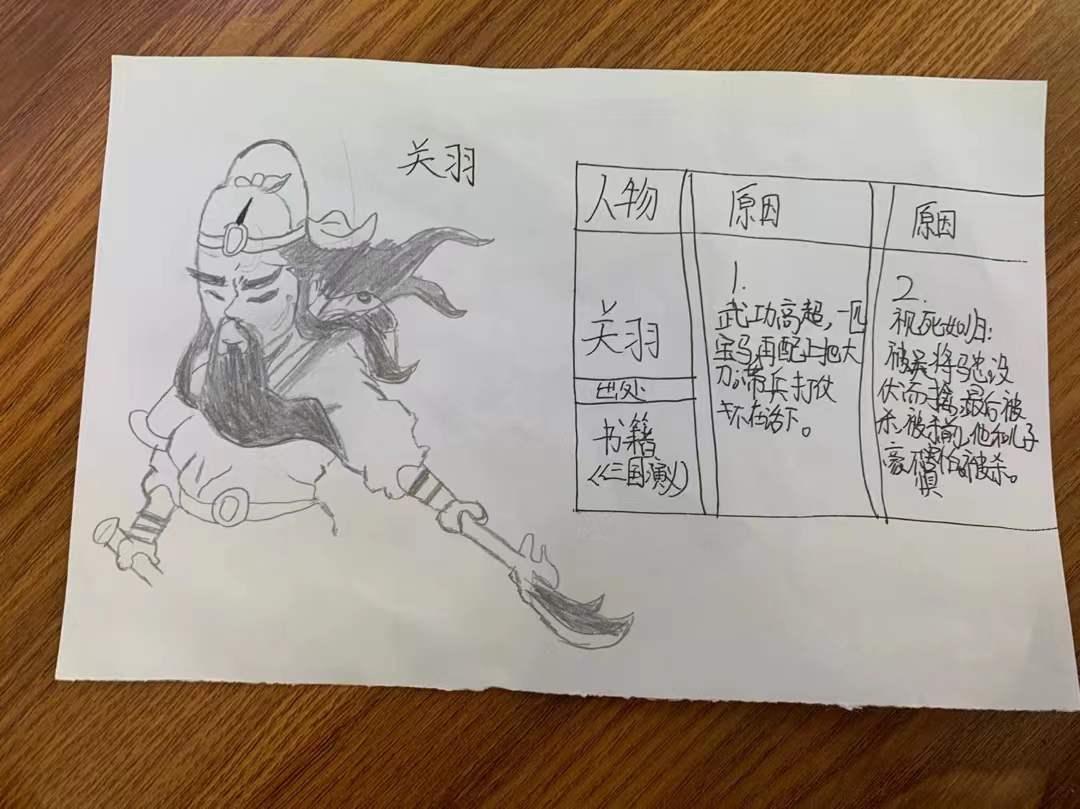 关羽
人物
原因
原因
关羽
出处
书籍
《三国演义》
1.
武功高超,一匹
宝马,再配上把大
刀,带兵打仗
不在话下。
2.
视死如归:
被吴将马忠设
伏而擒,最后被
杀,被擒前,他和儿子
毫不惧怕被杀。